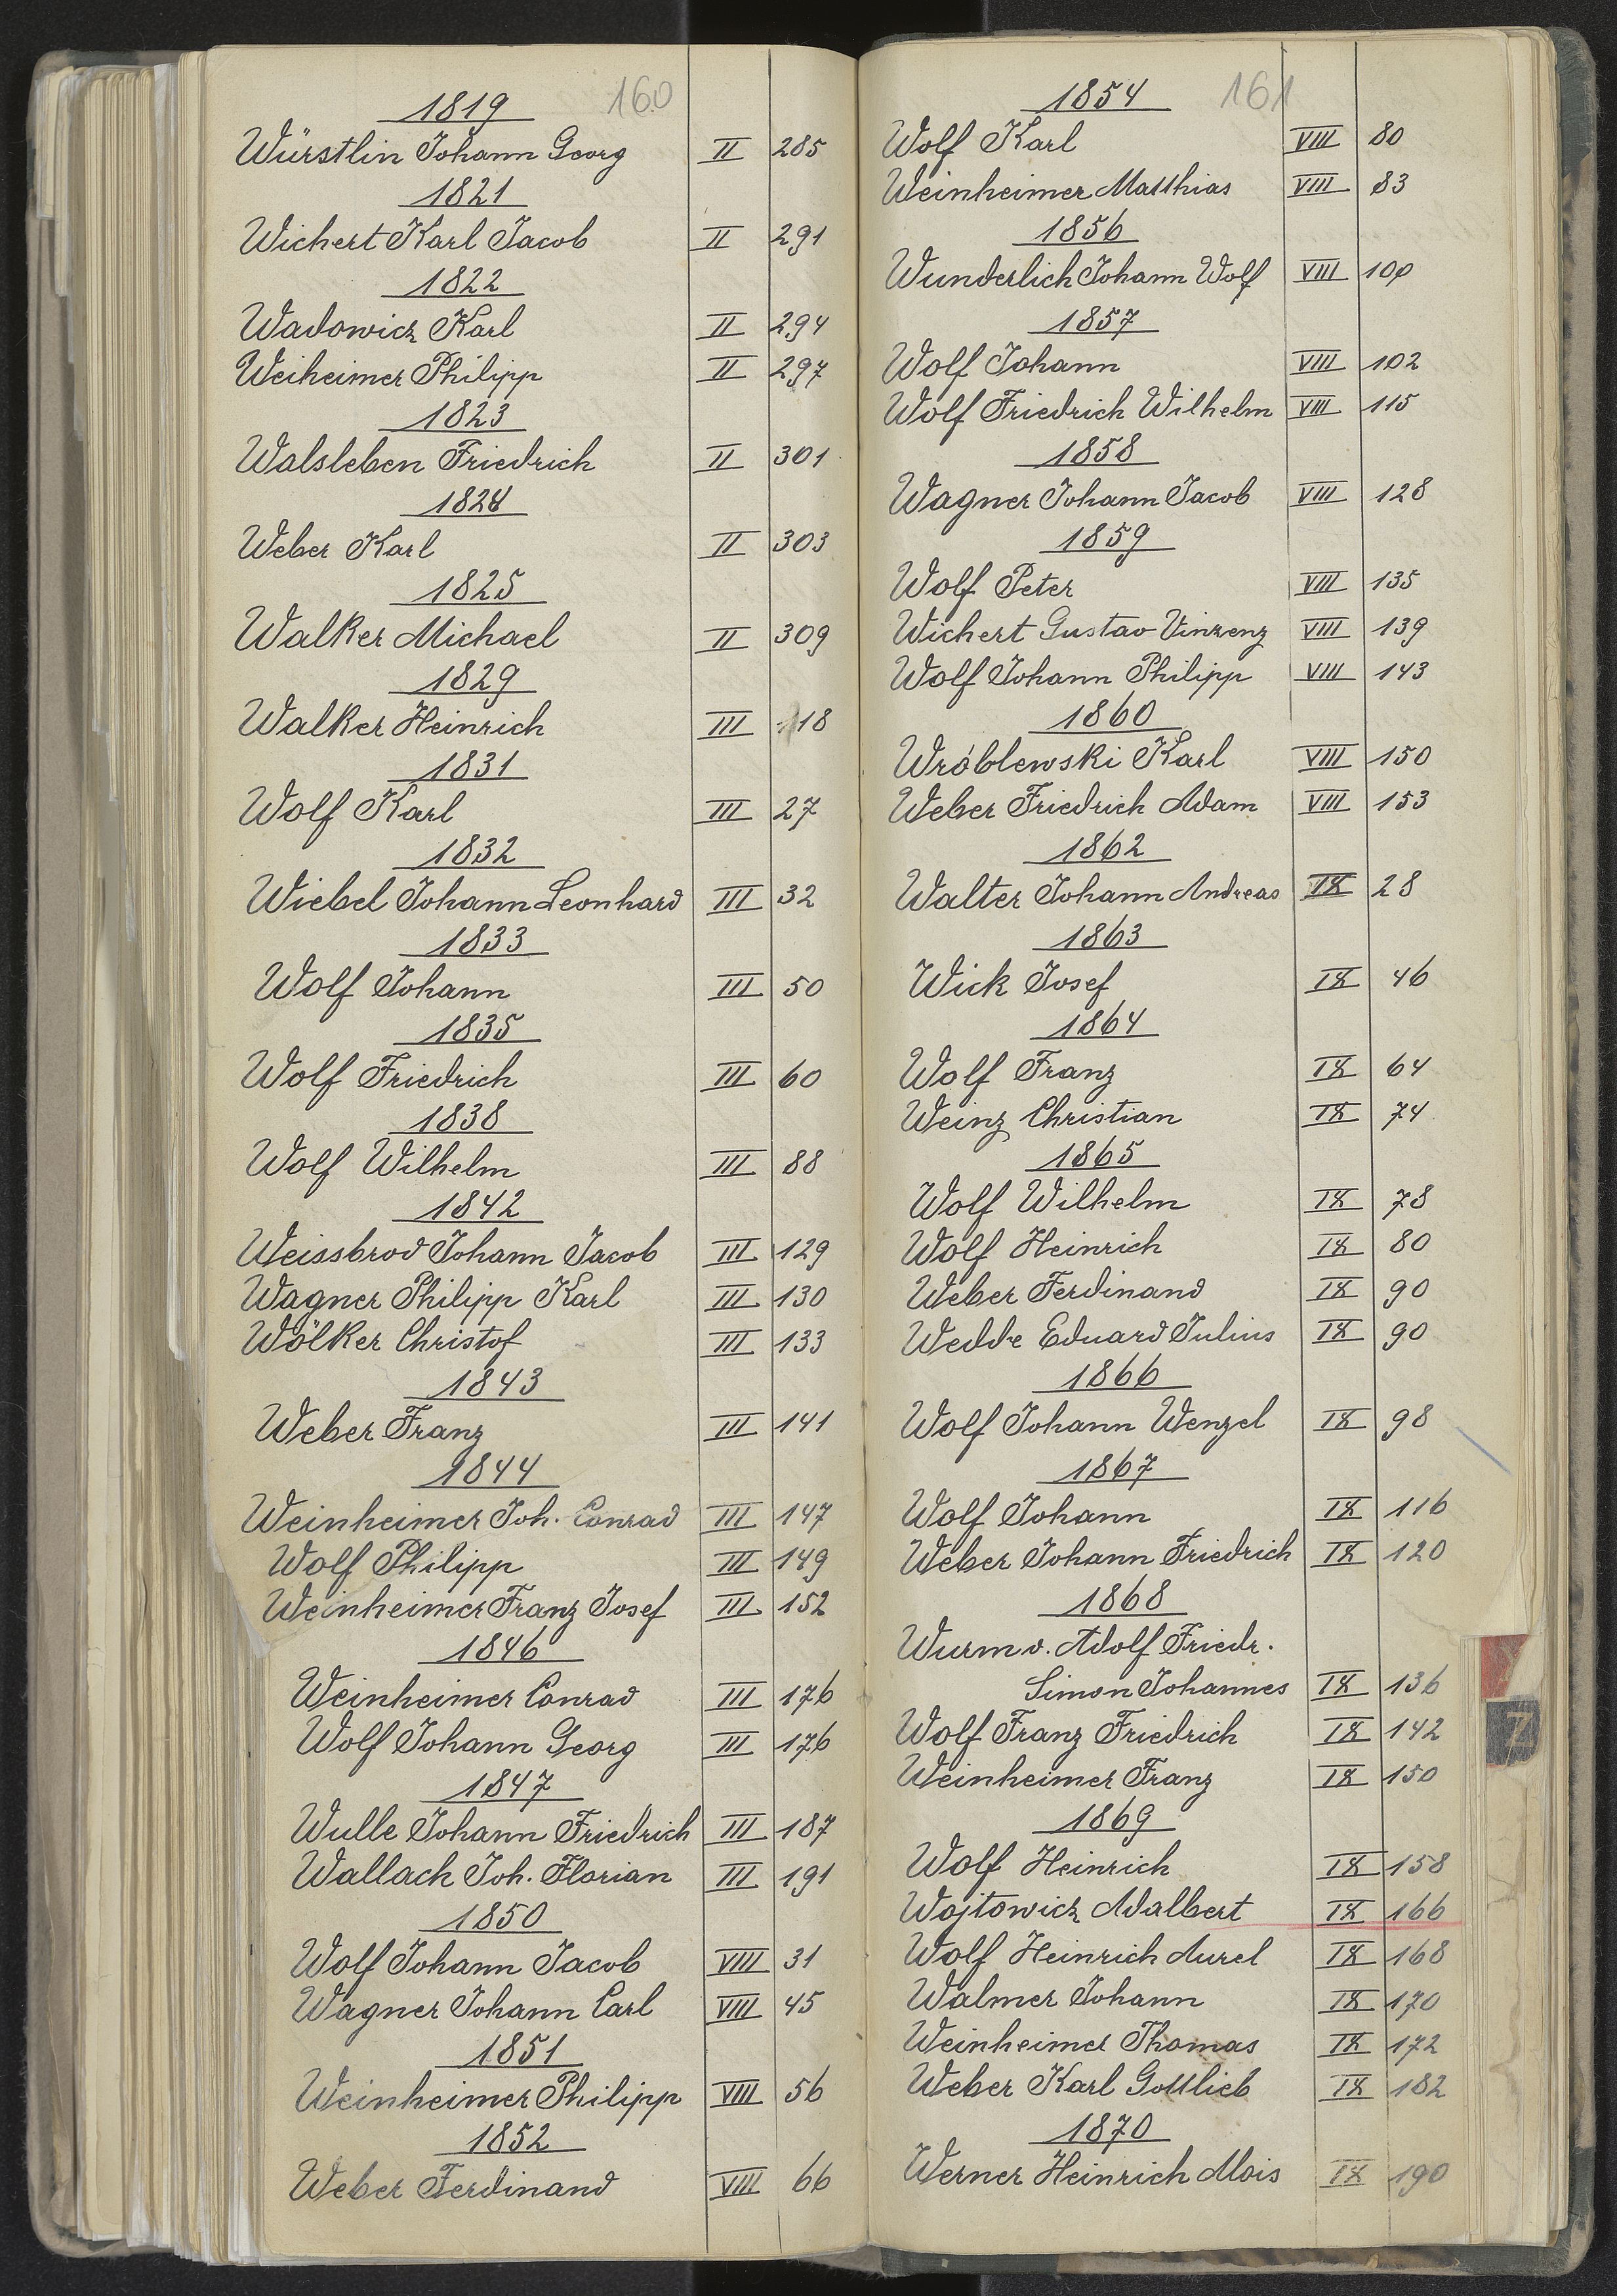 160
1819
Würstlin Johann Georg II 285
1821
Wichert Karl Jacob II 291
1822
Wadowicz Karl II 294
Weiheimer Philipp II 297
1823
Walsleben Friedrich II 301
1824
Weber Karl II 303
1825
Walker Michael II 309
1829
Walker Heinrich III 18
1831
Wolf Karl III 27
1832
Wiebel Johann Leonhard III 32
1833
Wolf Johann III 50
1835
Wolf Friedrich III 60
1838
Wolf Wilhelm III 88
1842
Weissbrod Johann Jacob III 129
Wagner Philipp Karl III 130
Wölker Christof III 133
1843
Weber Franz III 141
1844
Weinheimer Joh. Conrad III 147
Wolf Philipp III 149
Weinheimer Franz Josef III 152
1846
Weinheimer Conrad III 176
Wolf Johann Georg III 176
1847
Wulle Johann Friedrich III 187
Wallach Joh. Florian III 191
1850
Wolf Johann Jacob VIII 31
Wagner Johann Carl VIII 45
1851
Weinheimer Philipp VIII 56
1852
Weber Ferdinand VIII 66
161
1854
Wolf Karl VIII 80
Weinheimer Matthias VIII 83
1856
Wunderlich Johann Wolf VIII 100
1857
Wolf Johann VIII 102
Wolf Friedrich Wilhelm VIII 115
1858
Wagner Johann Jacob VIII 128
1859
Wolf Peter VIII 135
Wichert Gustav Vinzenz VIII 139
Wolf Johann Philipp VIII 143
1860
Wróblewski Karl VIII 150
Weber Friedrich Adam VIII 153
1862
Walter Johann Andreas IX 28
1863
Wick Josef IX 46
1864
Wolf Franz IX 64
Weinz Christian IX 74
1865
Wolf Wilhelm IX 78
Wolf Heinrich IX 80
Weber Ferdinand IX 90
Wedde Eduard Julius IX 90
1866
Wolf Johann Wenzel IX 98
1867
Wolf Johann IX 116
Weber Johann Friedrich IX 120
1868
Wurm v. Adolf Friedr.
Simon Johannes IX 136
Wolf Franz Friedrich IX 142
Weinheimer Franz IX 150
1869
Wolf Heinrich IX 158
Wojtowicz Adalbert IX 166
Wolf Heinrich Aurel IX 168
Walmer Johann IX 170
Weinheimer Thomas IX 172
Weber Karl Gottlieb IX 182
1870
Werner Heinrich Alois IX 190
Z